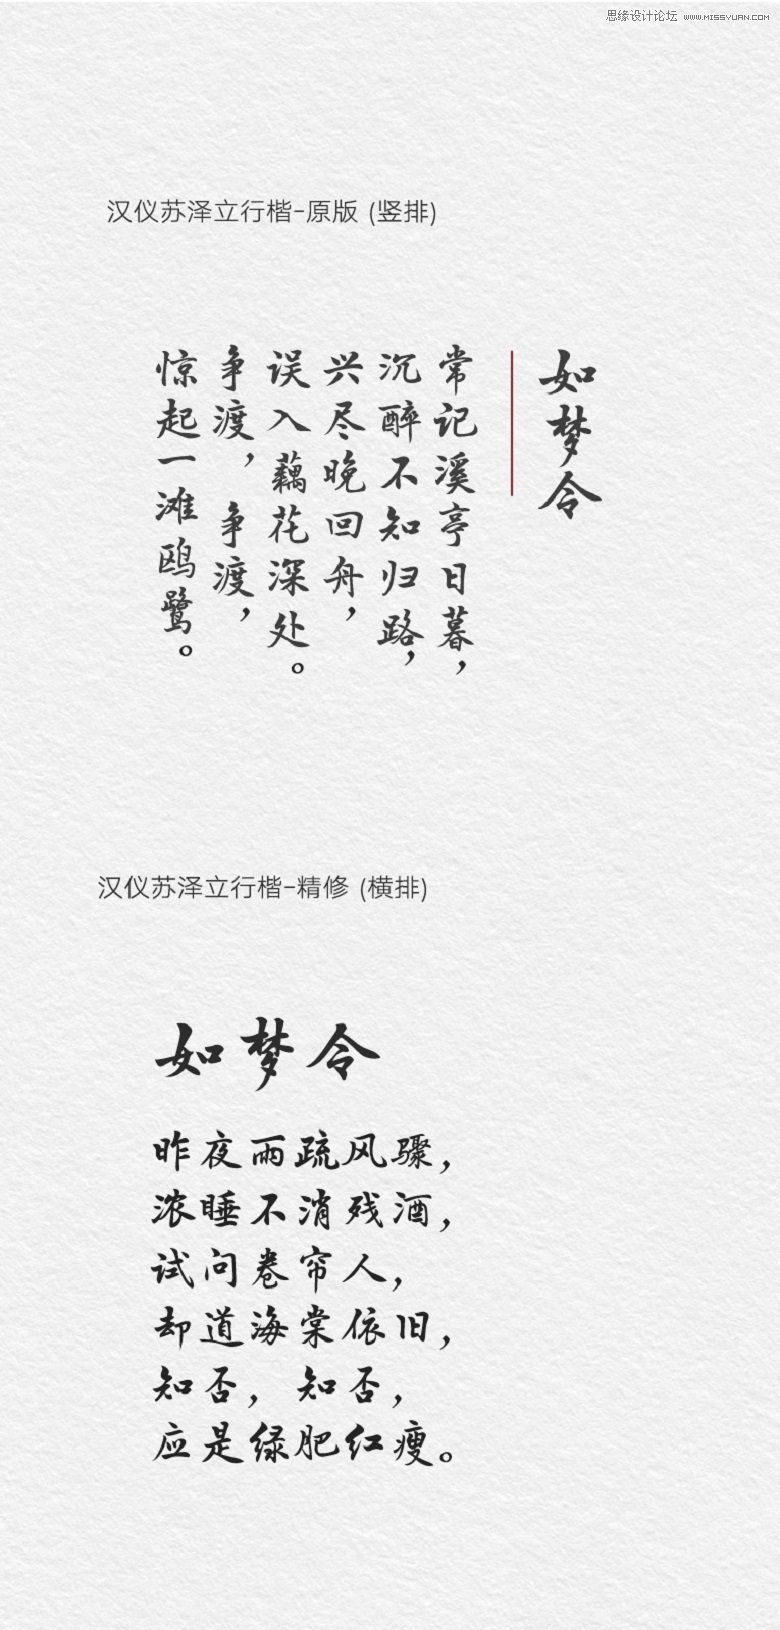 思缘设计论坛 WWW.MISSYUAN.COM
汉仪苏泽立行楷-原版 (竖排)
如梦令
常记溪亭日暮，
沉醉不知归路，
兴尽晚回舟，
误入藕花深处。
争渡，争渡，
惊起一滩鸥鹭。
汉仪苏泽立行楷-精修 (横排)
如梦令
昨夜雨疏风骤，
浓睡不消残酒，
试问卷帘人，
却道海棠依旧，
知否，知否，
应是绿肥红瘦。